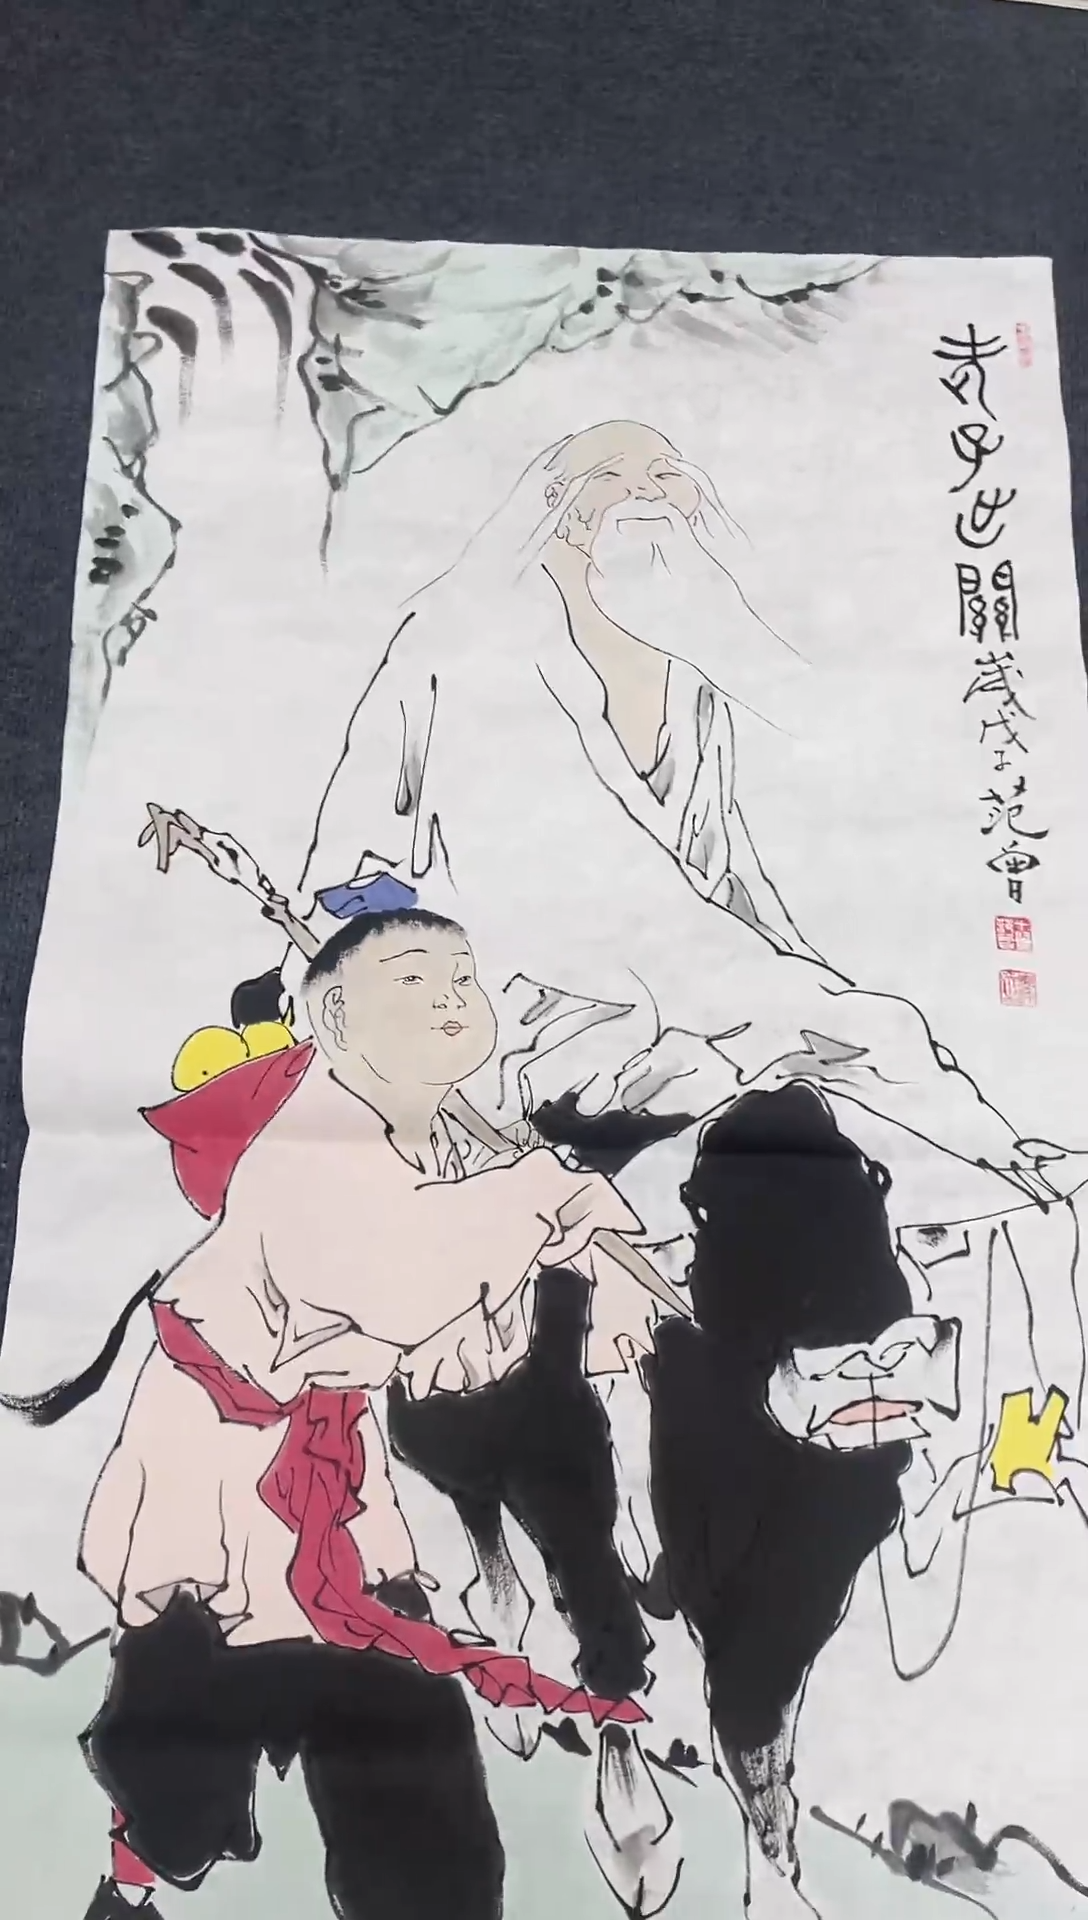 老子出關歲戊子范曾